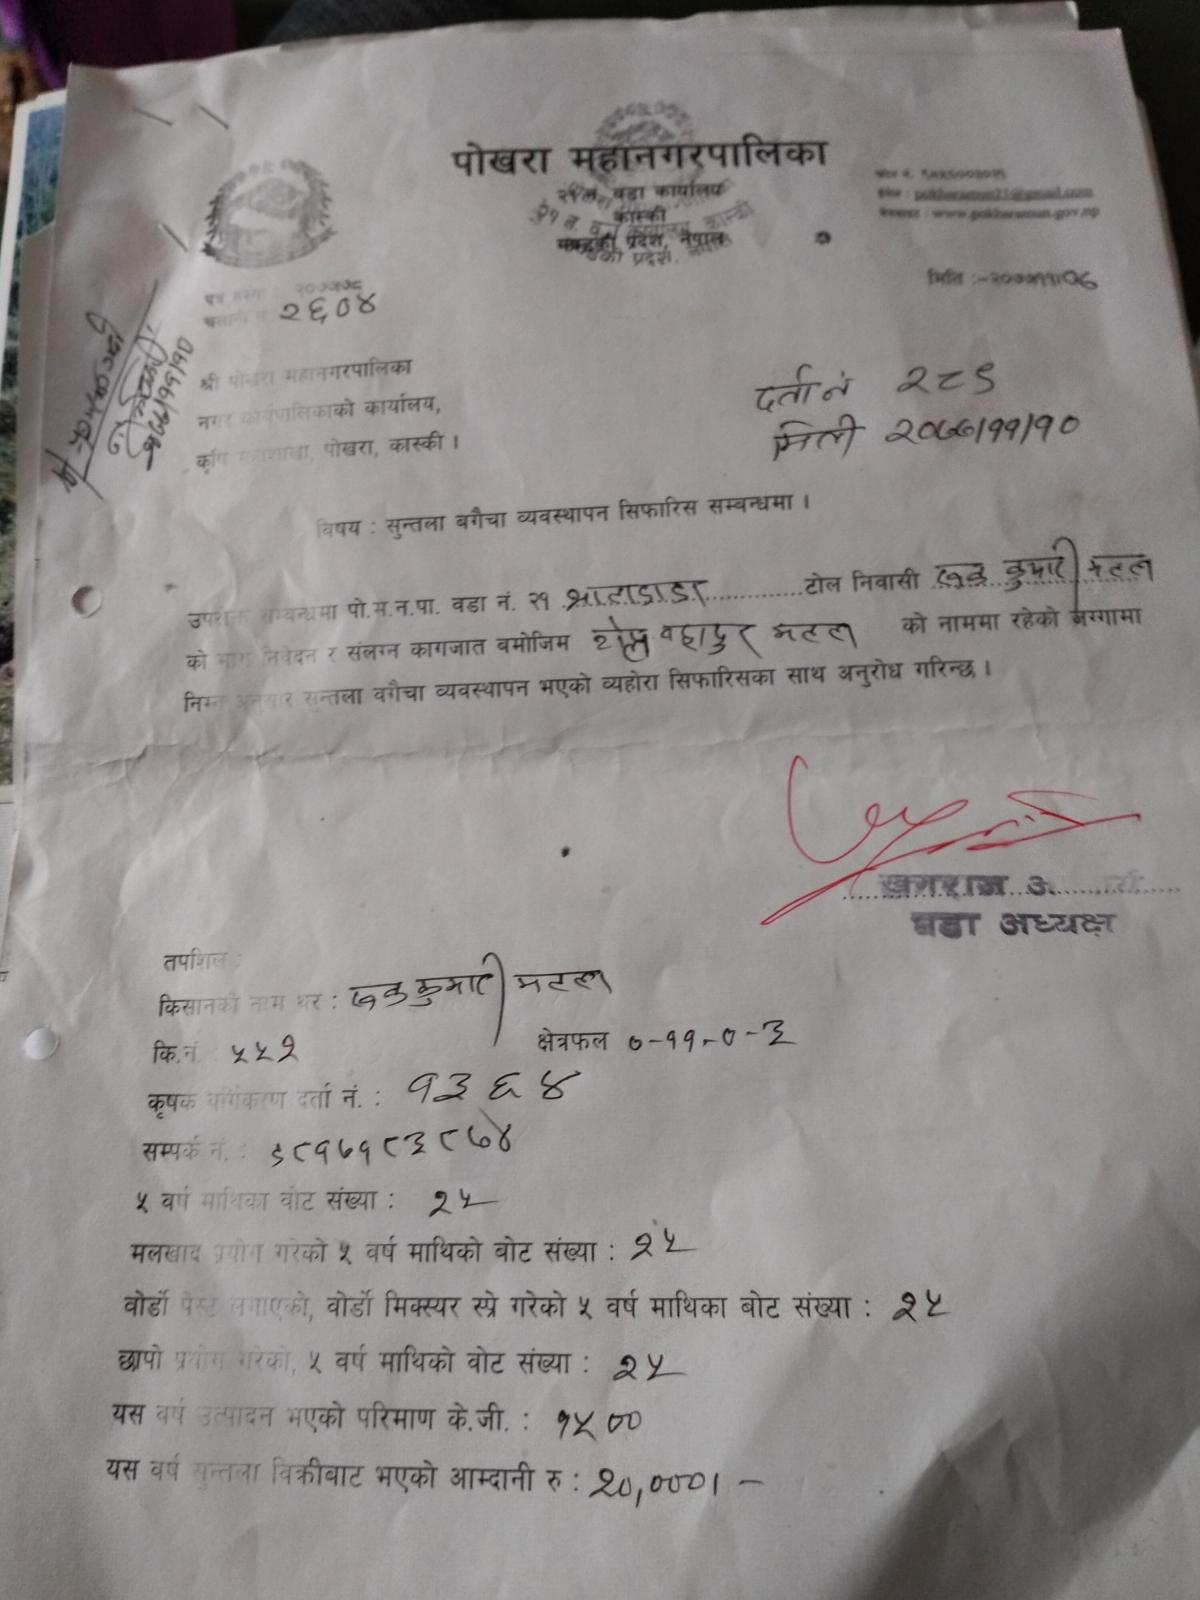 पोखरा महानगरपालिका
२१ नं. वडा कार्यालय
कास्की
गण्डकी प्रदेश, नेपाल
: pokharamun21@gmail.com
: www.pokharamun.gov.np
मिति :-२०७७।११।०६
पत्र संख्या : २०७७।७८
चलानी नं. २६०४
श्री पोखरा महानगरपालिका
नगर कार्यपालिकाको कार्यालय,
कृषि महाशाखा, पोखरा, कास्की ।
दर्ता नं २८९
मिती २०७७/११/१०
२०७७/११/१०
विषय : सुन्तला बगैचा व्यवस्थापन सिफारिस सम्बन्धमा ।
उपरोक्त सम्बन्धमा पो.म.न.पा. वडा नं. २१ ............... टोल निवासी कुमारी
को माग निवेदन र संलग्न कागजात बमोजिम बहादुर को नाममा रहेको जग्गामा
निम्न अनुसार सुन्तला बगैचा व्यवस्थापन भएको व्यहोरा सिफारिसका साथ अनुरोध गरिन्छ ।
खगराज
वडा अध्यक्ष
तपशिल :
किसानको नाम थर : कुमारी
कि.नं. ५५२ क्षेत्रफल ०-११-०-३
कृषक वर्गिकरण दर्ता नं. : १३६४
सम्पर्क नं. : ९८१७१८३८७४
५ वर्ष माथिका बोट संख्या : २५
मलखाद प्रयोग गरेको ५ वर्ष माथिको बोट संख्या : २५
वोर्डो पेस्ट लगाएको, वोर्डो मिक्स्चर स्प्रे गरेको ५ वर्ष माथिका बोट संख्या : २५
छापो प्रयोग गरेको, ५ वर्ष माथिको बोट संख्या : २५
यस वर्ष उत्पादन भएको परिमाण के.जी. : १५००
यस वर्ष सुन्तला विक्रीबाट भएको आम्दानी रु : २०,०००।-